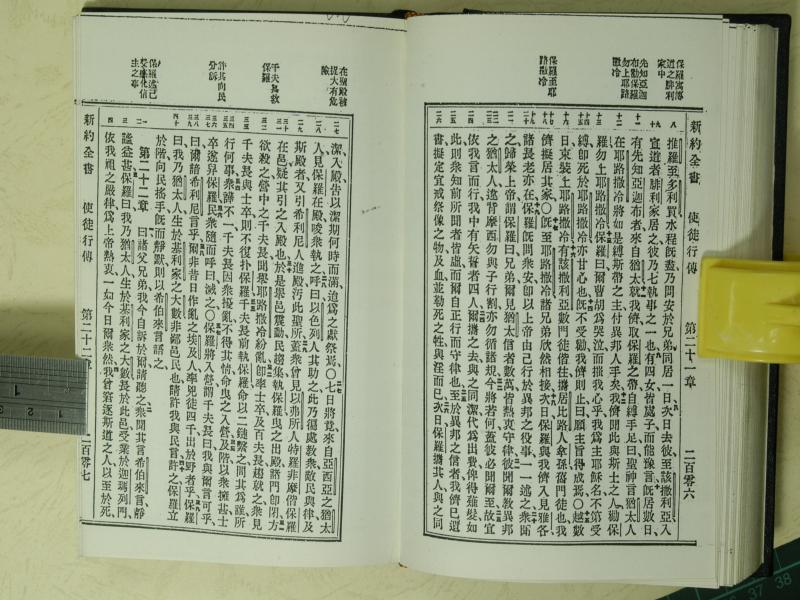 新約全書
使徒行傳
第二十一章
二百零六
保羅寓傳
道之腓利
家中
先知亞迦
布勸保羅
勿上耶路
撒冷
保羅至耶
路撒冷
推羅至多利買水程旣盡乃問安於兄弟同居一日次日去彼至該撒利亞入
宣道者腓利家居之彼乃七執事之一也有四女皆處子而能豫言旣居數日
有先知亞迦布者來自猶太就我儕取保羅之帶自縛手足曰聖神言猶太人
在耶路撒冷將如是縛斯帶之主付異邦人手矣我儕聞此與斯土之人勸保
羅勿上耶路撒冷保羅曰爾曹胡爲哭泣而摧我心乎我爲主耶穌名不第受
縛卽死於耶路撒冷亦甘心也旣不受勸我儕則止曰願主旨得成焉〇越數
日束裝上耶路撒冷有該撒利亞數門徒偕往攜居比路人拿孫舊門徒也我
儕擬居其家〇旣至耶路撒冷諸兄弟欣然相接次日保羅與我儕入見雅各
諸長老亦在保羅旣問衆安卽以上帝由己行於異邦之役事一一述之衆聞
之歸榮上帝謂保羅曰兄弟爾見猶太信者數萬皆熱衷守律彼聞爾敎異邦
之猶太人違背摩西勿與子行割亦勿循諸規今將若何蓋彼必聞爾至故宜
依我言而行我中有矢誓者四人爾攜之去與之同潔代爲出費俾得薙髮如
此則衆知前所聞者皆虛而爾自正行而守律也至於異邦之信者我儕已遺
書擬定宜戒祭像之物及血並勒死之牲與淫而已次日保羅攜其人與之同
在聖殿被
捉大有危
險
千夫長救
保羅
許其向民
分訴
保羅述己
蒙感化信
主之事
潔入殿告以潔期何時而滿迨爲之獻祭焉〇七日將竟來自亞西亞之猶太
人見保羅在殿唆衆執之呼曰以色列人其助之此乃徧處敎衆敵民與律及
斯殿者又引希利尼人進殿汚此聖所蓋衆曾見以弗所人特羅非摩偕保羅
在邑疑其引之入殿也於是舉邑震動民趨集執保羅曳之出殿諸門卽閉方
欲殺之營中之千夫長聞舉耶路撒冷紛亂卽率士卒及百夫長趨就之衆見
千夫長與士卒則不復扑保羅千夫長前執保羅命以二鏈繫之問其爲誰所
行何事衆譁不一千夫長因衆擾亂不得其情命曳之入營及階以衆擁甚士
卒遂舁保羅民衆隨而呼曰滅之〇保羅將入營謂千夫長曰我與爾言可乎
曰爾諳希利尼言乎爾非昔日作亂之埃及人率兇徒四千出於野者乎保羅
曰我乃猶太人生於基利家之大數非鄙邑民也請許我與民言許之保羅立
於階向民搖手旣而靜默則以希伯來言語之
第二十二章 曰諸父兄弟我今自訴於爾請聽之衆聞其言希伯來言靜
謐益甚保羅曰我乃猶太人生於基利家之大數長於此邑受業於迦瑪列門
依我祖之嚴律爲上帝熱衷一如今日爾衆然我曾窘逐斯道之人以至於死
新約全書
使徒行傳
第二十二章
二百零七
1
37
38